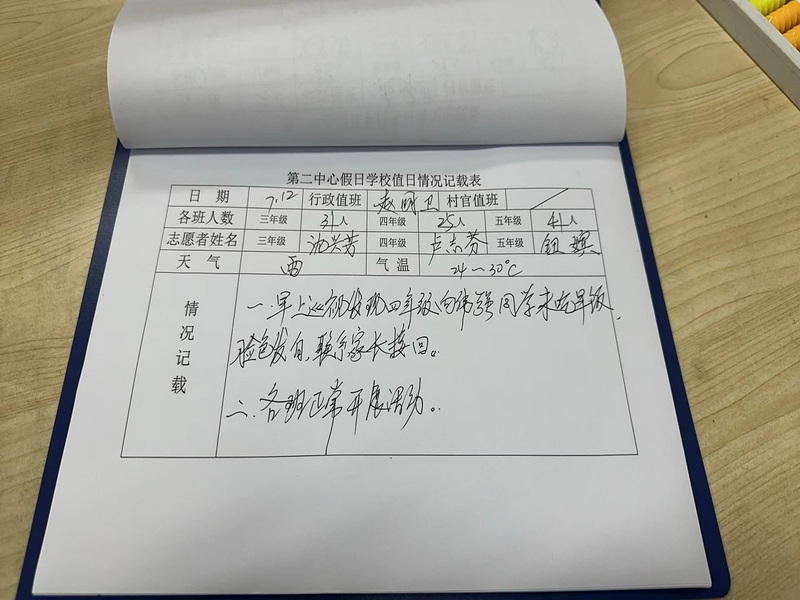 第二中心假日学校值日情况记载表
日 期 7.12 行政值班 赵明卫 村官值班
各班人数 三年级 31人 四年级 25人 五年级 41人
志愿者姓名 三年级 沈兴芳 四年级 卢志芬 五年级 钮
天 气 雨 气 温 24~30℃
情况记载
一.早上巡视发现四年级 同学未吃早饭,
脸色发白,联系家长接回。
二.各班正常开展活动。